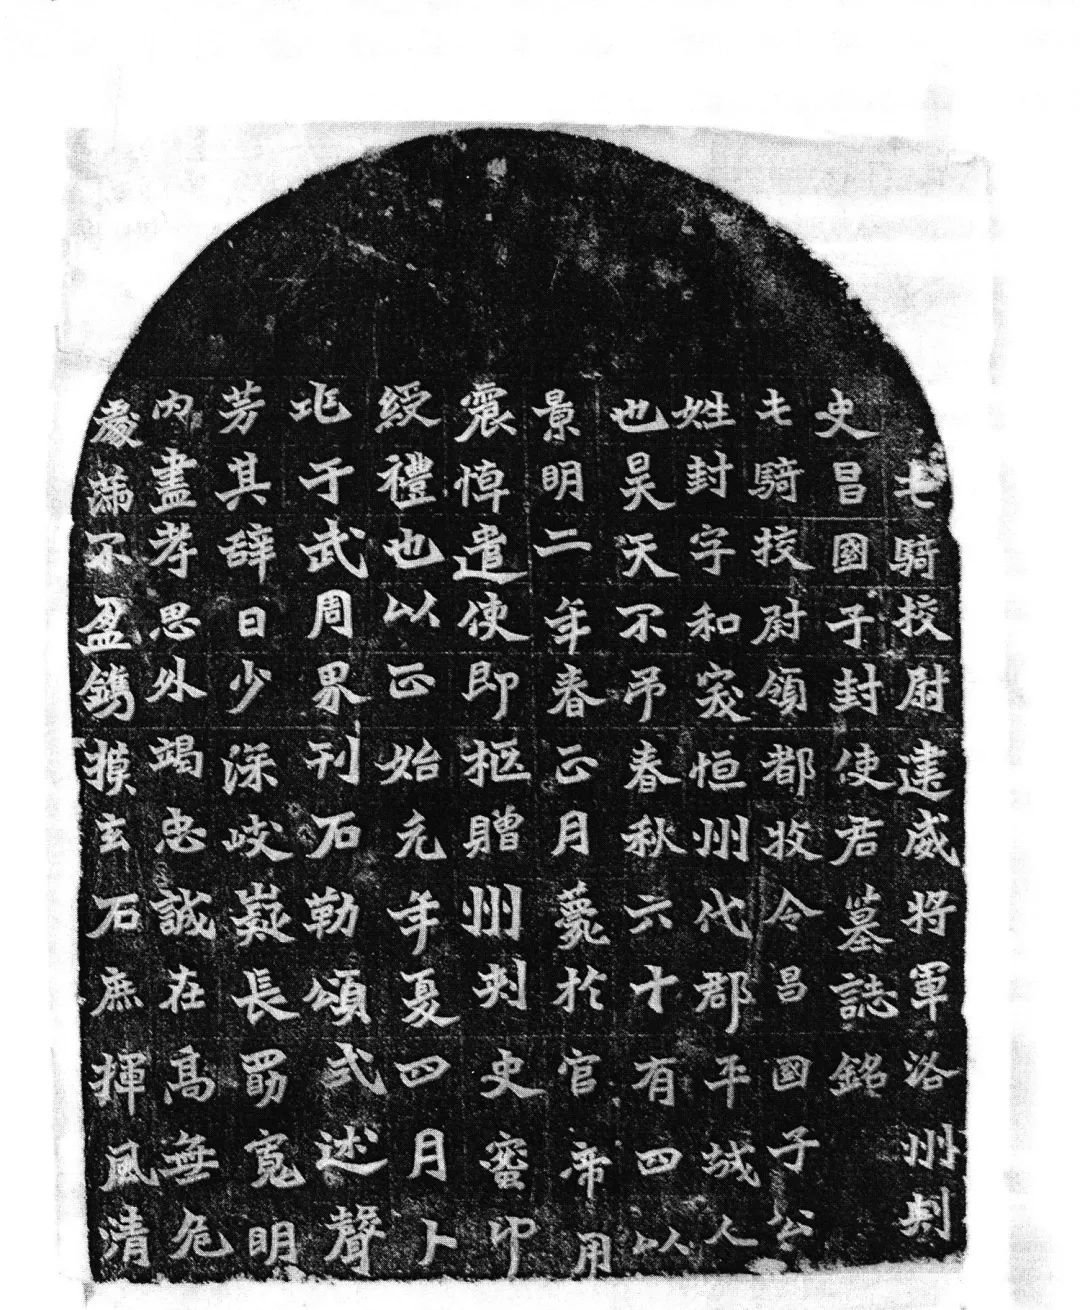 屯騎挍尉建威將軍洛州刾
史昌國子封使君墓誌銘
屯騎挍尉領都牧令昌國子公
姓封字和窔恒州代郡平城人
也昊天不弔春秋六十有四以
景明二年春正月薨於官帝用
震悼遣使即柩贈州刾史蜜印
綬禮也以正始元年夏四月卜
兆于武周界刊石勒頌式述聲
芳其辞曰少深岐嶷長勗寬明
内盡孝思外竭忠誠在高無危
處滿不盈鐫摸玄石庶揮風清